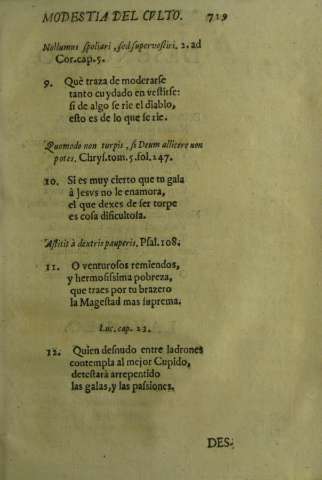 MODESTIA DEL CVLTO. 719
Nollumus spoliari, sed supervestiri. 2. ad
Cor. cap. 5.
9. Què traza de moderarse
tanto cuydado en vestirse:
si de algo se rie el diablo,
esto es de lo que se rie.
Quomodo non turpis, si Deum allicere non
potes. Chrys. tom. 5. fol. 147.
10. Si es muy cierto que tu gala
à Jesvs no le enamora,
el que dexes de ser torpe
es cosa dificultosa.
Astitit à dextris pauperis. Psal. 108.
11. O venturosos remiendos,
y hermosissima pobreza,
que traes por tu brazero
la Magestad mas suprema.
Luc. cap. 23.
12. Quien desnudo entre ladrones
contempla al mejor Cupido,
detestarà arrepentido
las galas, y las passiones.
DES-